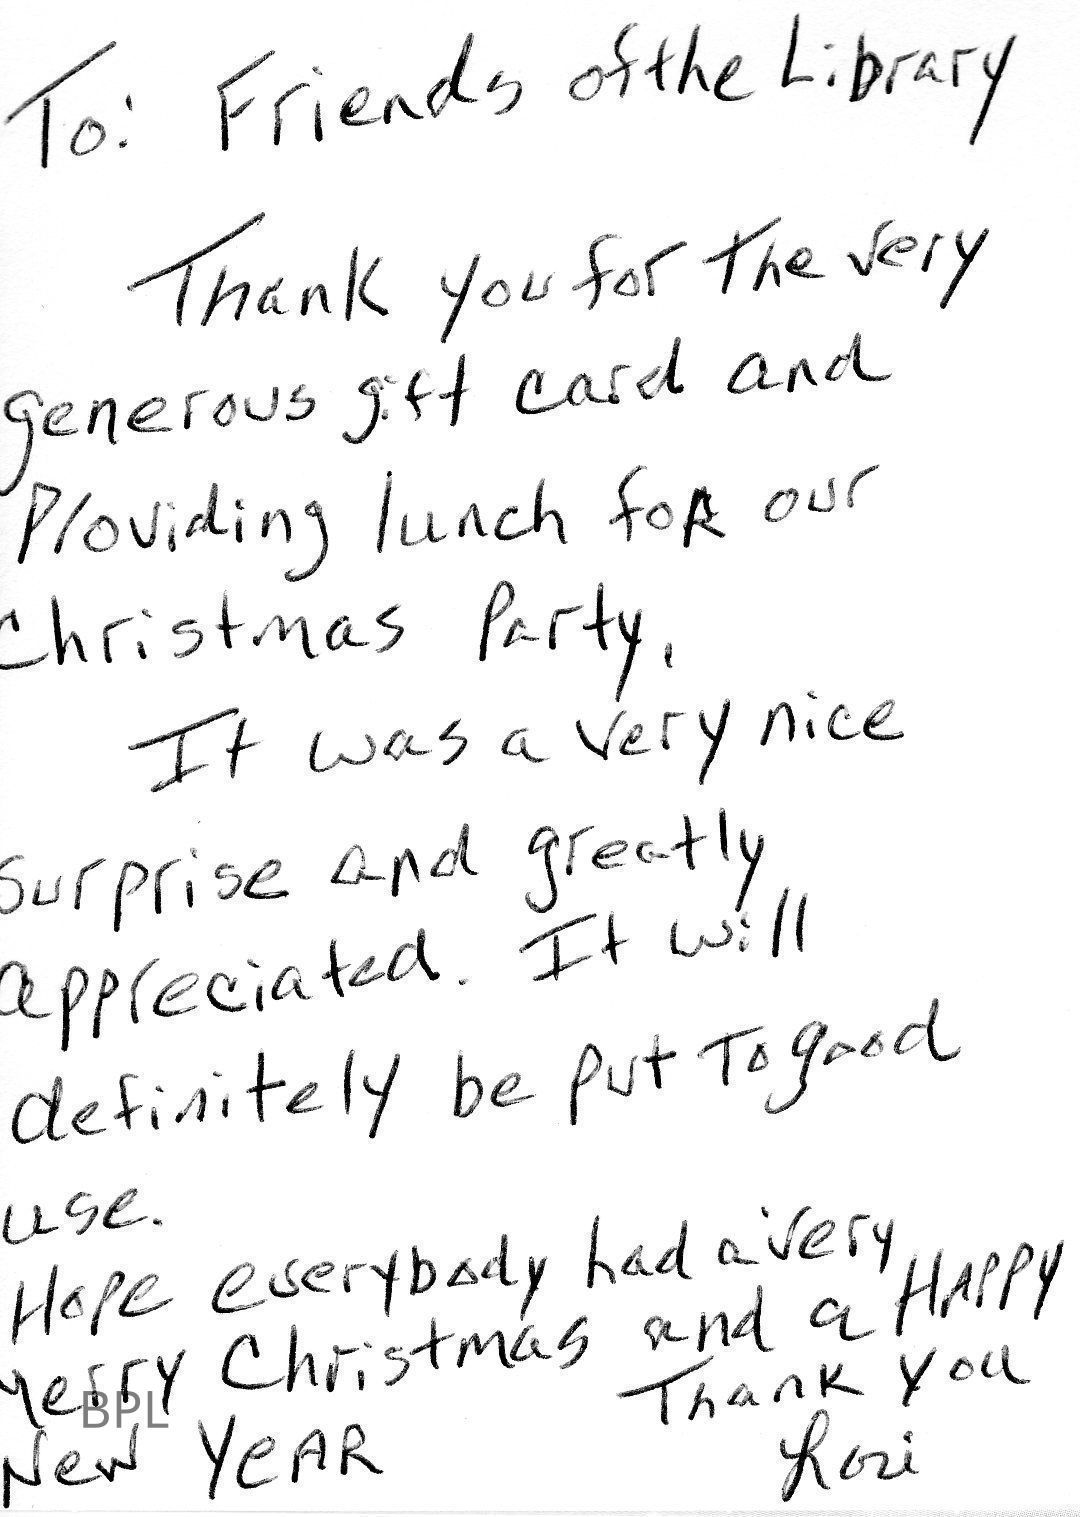 To: Friends of the Library
Thank you for the very
generous gift card and
Providing lunch for our
Christmas Party.
It was a very nice
surprise and greatly
appreciated. It will
definitely be put To good
use.
Hope everybody had a very
Merry Christmas and a HAPPY
New YeAR
Thank you
Lori
BPL